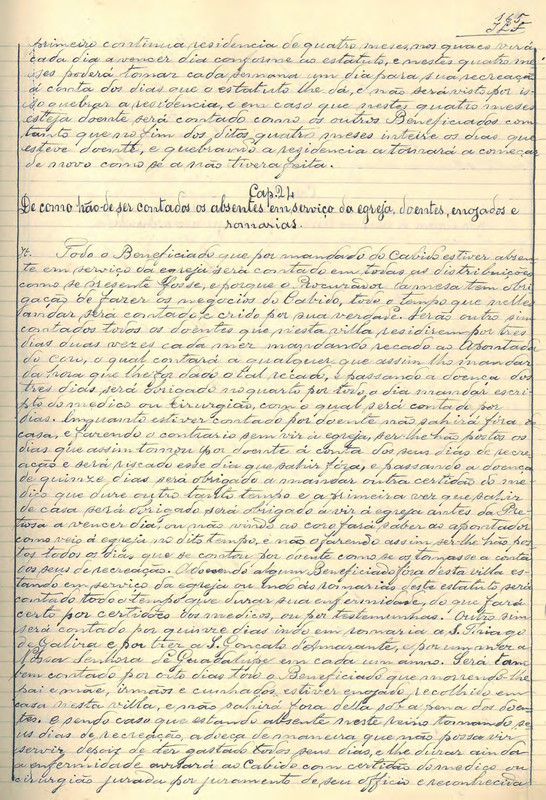 165
primeiro continua residencia de quatro meses, nos quaes virá
cada dia a vencer dia conforme ao estatuto, e nestes quatro me
ses poderá tomar cada semana um dia para sua recreação
á conta dos dias que o estatuto lhe dá, e não será visto por is
so quebrar a residencia, e em caso que nestes quatro meses
esteja doente será contado como os outros Beneficiados com
tanto que no fim dos ditos quatro meses inteire os dias que
esteve doente, e quebrando a residencia a tornará a começar
de novo como se a não tivera feita.
Cap. 24
De como hão-de ser contados os absentes em serviço da egreja, doentes, enojados e
romarias.
Todo o Beneficiado que por mandado do Cabido estiver absen
te em serviço da egreja será contado em todas as distribuições
como se presente fosse, e porque o Procurador da mesa tem obri
gação de fazer os negocios do Cabido, todo o tempo que nelles
andar será contado e crido por sua verdade. Serão outro sim
contados todos os doentes que nesta villa residirem por tres
dias duas vezes cada mez mandando recado ao Apontador
do coro, o qual contará a qualquer que assim lho mandar
da hora que lhe for dado o tal recado, e passando a doença dos
tres dias será obrigado no quarto por todo o dia mandar escri
pto do medico ou cirurgião, com o qual será contado por
dias. Emquanto estiver contado por doente não sahirá fóra de
casa, e fazendo o contrario sem vir á egreja, ser-lhe-hão postos os
dias que assim tomou por doente á conta dos seus dias de recre
ação e será riscado esse dia que sahir fóra, e passando a doença
de quinze dias será obrigado a mandar outra certidão do me
dico que dure outro tanto tempo e a primeira vez que sahir
de casa será obrigado será obrigado á vir á egreja antes da Pre
tiosa a vencer dia, ou não vindo ao coro fará saber ao apontador
como veio á egreja no dito tempo, e não o fazendo assim ser-lhe-hão pos
tos todos os dias que se contou por doente como se os tomasse á conta
dos seus de recreação. Adoecendo algum Beneficiado fóra desta villa es
tando em serviço da egreja ou indo ás romarias deste estatuto será
contado todo o tempo que durar sua enfermidade, do que fará
certo por certidões dos medicos, ou por testemunhas. Outro sim
será contado por quinze dias indo em romaria a S. Thiago
de Galiza e por trez a S. Gonçalo d'Amarante, e por um mez a
Nossa Senhora de Guadalupe em cada um anno. Será tam
bem contado por oito dias todo o Beneficiado que morrendo-lhe
pai e mãe, irmãos e cunhados estiver enojado recolhido em
casa nesta villa, e não sahirá fóra della sob a pena dos doen
tes. E sendo caso que estando absente neste reino tomando se
us dias de recreação, adoeça de maneira que não possa vir
servir, depois de ter gastado todos seus dias, e lhe durar ainda
a enfermidade avisará ao Cabido com certidão do medico ou
cirurgião jurada por juramento de seu officio e reconhecida